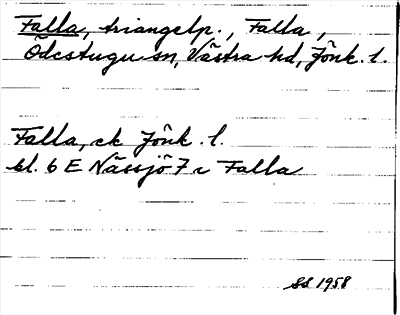 Falla, triangelp., Falla,
Ödestugu sn, Västra hd, Jönk. l.
Falla, ek Jönk. l.
bl. 6 E Nässjö 7 c Falla
SS 1958